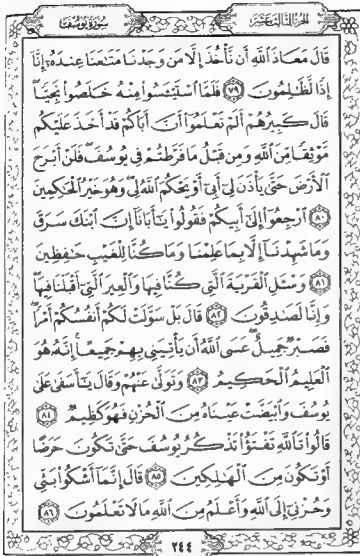 الجزء الثالث عشر
سورة يوسف
قَالَ مَعَاذَ ٱللَّهِ أَن نَّأْخُذَ إِلَّا مَن وَجَدْنَا مَتَـٰعَنَا عِندَهُۥٓ إِنَّآ
إِذًا لَّظَـٰلِمُونَ ٧٩ فَلَمَّا ٱسْتَيْـَٔسُوا۟ مِنْهُ خَلَصُوا۟ نَجِيًّا ۖ
قَالَ كَبِيرُهُمْ أَلَمْ تَعْلَمُوٓا۟ أَنَّ أَبَاكُمْ قَدْ أَخَذَ عَلَيْكُم
مَّوْثِقًا مِّنَ ٱللَّهِ وَمِن قَبْلُ مَا فَرَّطتُمْ فِى يُوسُفَ ۖ فَلَنْ أَبْرَحَ
ٱلْأَرْضَ حَتَّىٰ يَأْذَنَ لِىٓ أَبِىٓ أَوْ يَحْكُمَ ٱللَّهُ لِى ۖ وَهُوَ خَيْرُ ٱلْحَـٰكِمِينَ
٨٠ ٱرْجِعُوٓا۟ إِلَىٰٓ أَبِيكُمْ فَقُولُوا۟ يَـٰٓأَبَانَآ إِنَّ ٱبْنَكَ سَرَقَ
وَمَا شَهِدْنَآ إِلَّا بِمَا عَلِمْنَا وَمَا كُنَّا لِلْغَيْبِ حَـٰفِظِينَ
٨١ وَسْـَٔلِ ٱلْقَرْيَةَ ٱلَّتِى كُنَّا فِيهَا وَٱلْعِيرَ ٱلَّتِىٓ أَقْبَلْنَا فِيهَا ۖ
وَإِنَّا لَصَـٰدِقُونَ ٨٢ قَالَ بَلْ سَوَّلَتْ لَكُمْ أَنفُسُكُمْ أَمْرًا ۖ
فَصَبْرٌ جَمِيلٌ ۖ عَسَى ٱللَّهُ أَن يَأْتِيَنِى بِهِمْ جَمِيعًا ۚ إِنَّهُۥ هُوَ
ٱلْعَلِيمُ ٱلْحَكِيمُ ٨٣ وَتَوَلَّىٰ عَنْهُمْ وَقَالَ يَـٰٓأَسَفَىٰ عَلَىٰ
يُوسُفَ وَٱبْيَضَّتْ عَيْنَاهُ مِنَ ٱلْحُزْنِ فَهُوَ كَظِيمٌ ٨٤
قَالُوا۟ تَٱللَّهِ تَفْتَؤُا۟ تَذْكُرُ يُوسُفَ حَتَّىٰ تَكُونَ حَرَضًا
أَوْ تَكُونَ مِنَ ٱلْهَـٰلِكِينَ ٨٥ قَالَ إِنَّمَآ أَشْكُوا۟ بَثِّى
وَحُزْنِىٓ إِلَى ٱللَّهِ وَأَعْلَمُ مِنَ ٱللَّهِ مَا لَا تَعْلَمُونَ ٨٦
٢٤٤